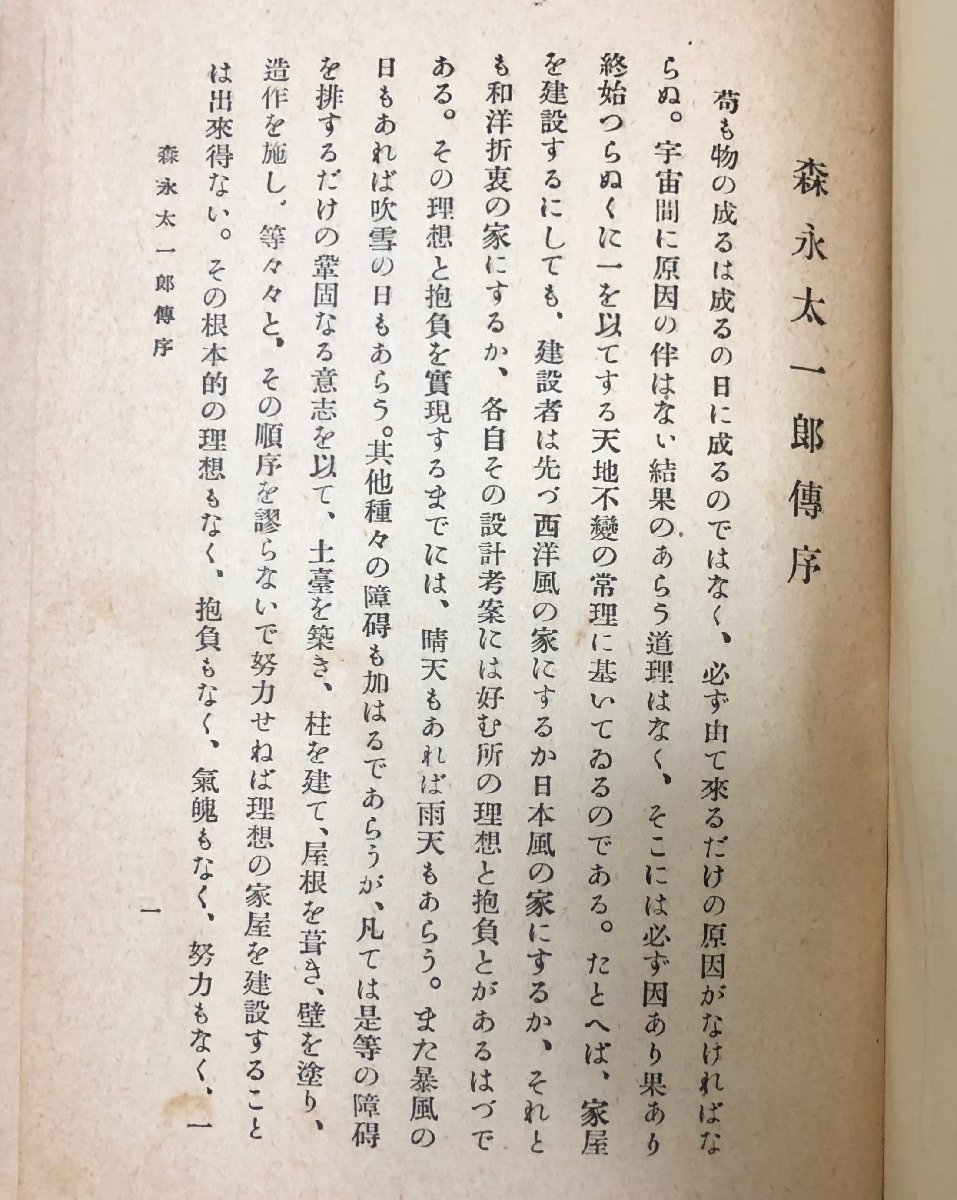 森永太一郎傳序
苟も物の成るは成るの日に成るのではなく、必ず由て來るだけの原因がなければな
らぬ。宇宙間に原因の伴はない結果のあらう道理はなく、そこには必ず因あり果あり
終始つらぬくに一を以てする天地不變の常理に基いてゐるのである。たとへば、家屋
を建設するにしても、建設者は先づ西洋風の家にするか日本風の家にするか、それと
も和洋折衷の家にするか、各自その設計考案には好む所の理想と抱負とがあるはづで
ある。その理想と抱負を實現するまでには、晴天もあれば雨天もあらう。また暴風の
日もあれば吹雪の日もあらう。其他種々の障碍も加はるであらうが、凡ては是等の障碍
を排するだけの鞏固なる意志を以て、土臺を築き、柱を建て、屋根を葺き、壁を塗り、
造作を施し、等々々と、その順序を謬らないで努力せねば理想の家屋を建設すること
は出來得ない。その根本的の理想もなく、抱負もなく、氣魄もなく、努力もなく、一
森永太一郎傳序
一